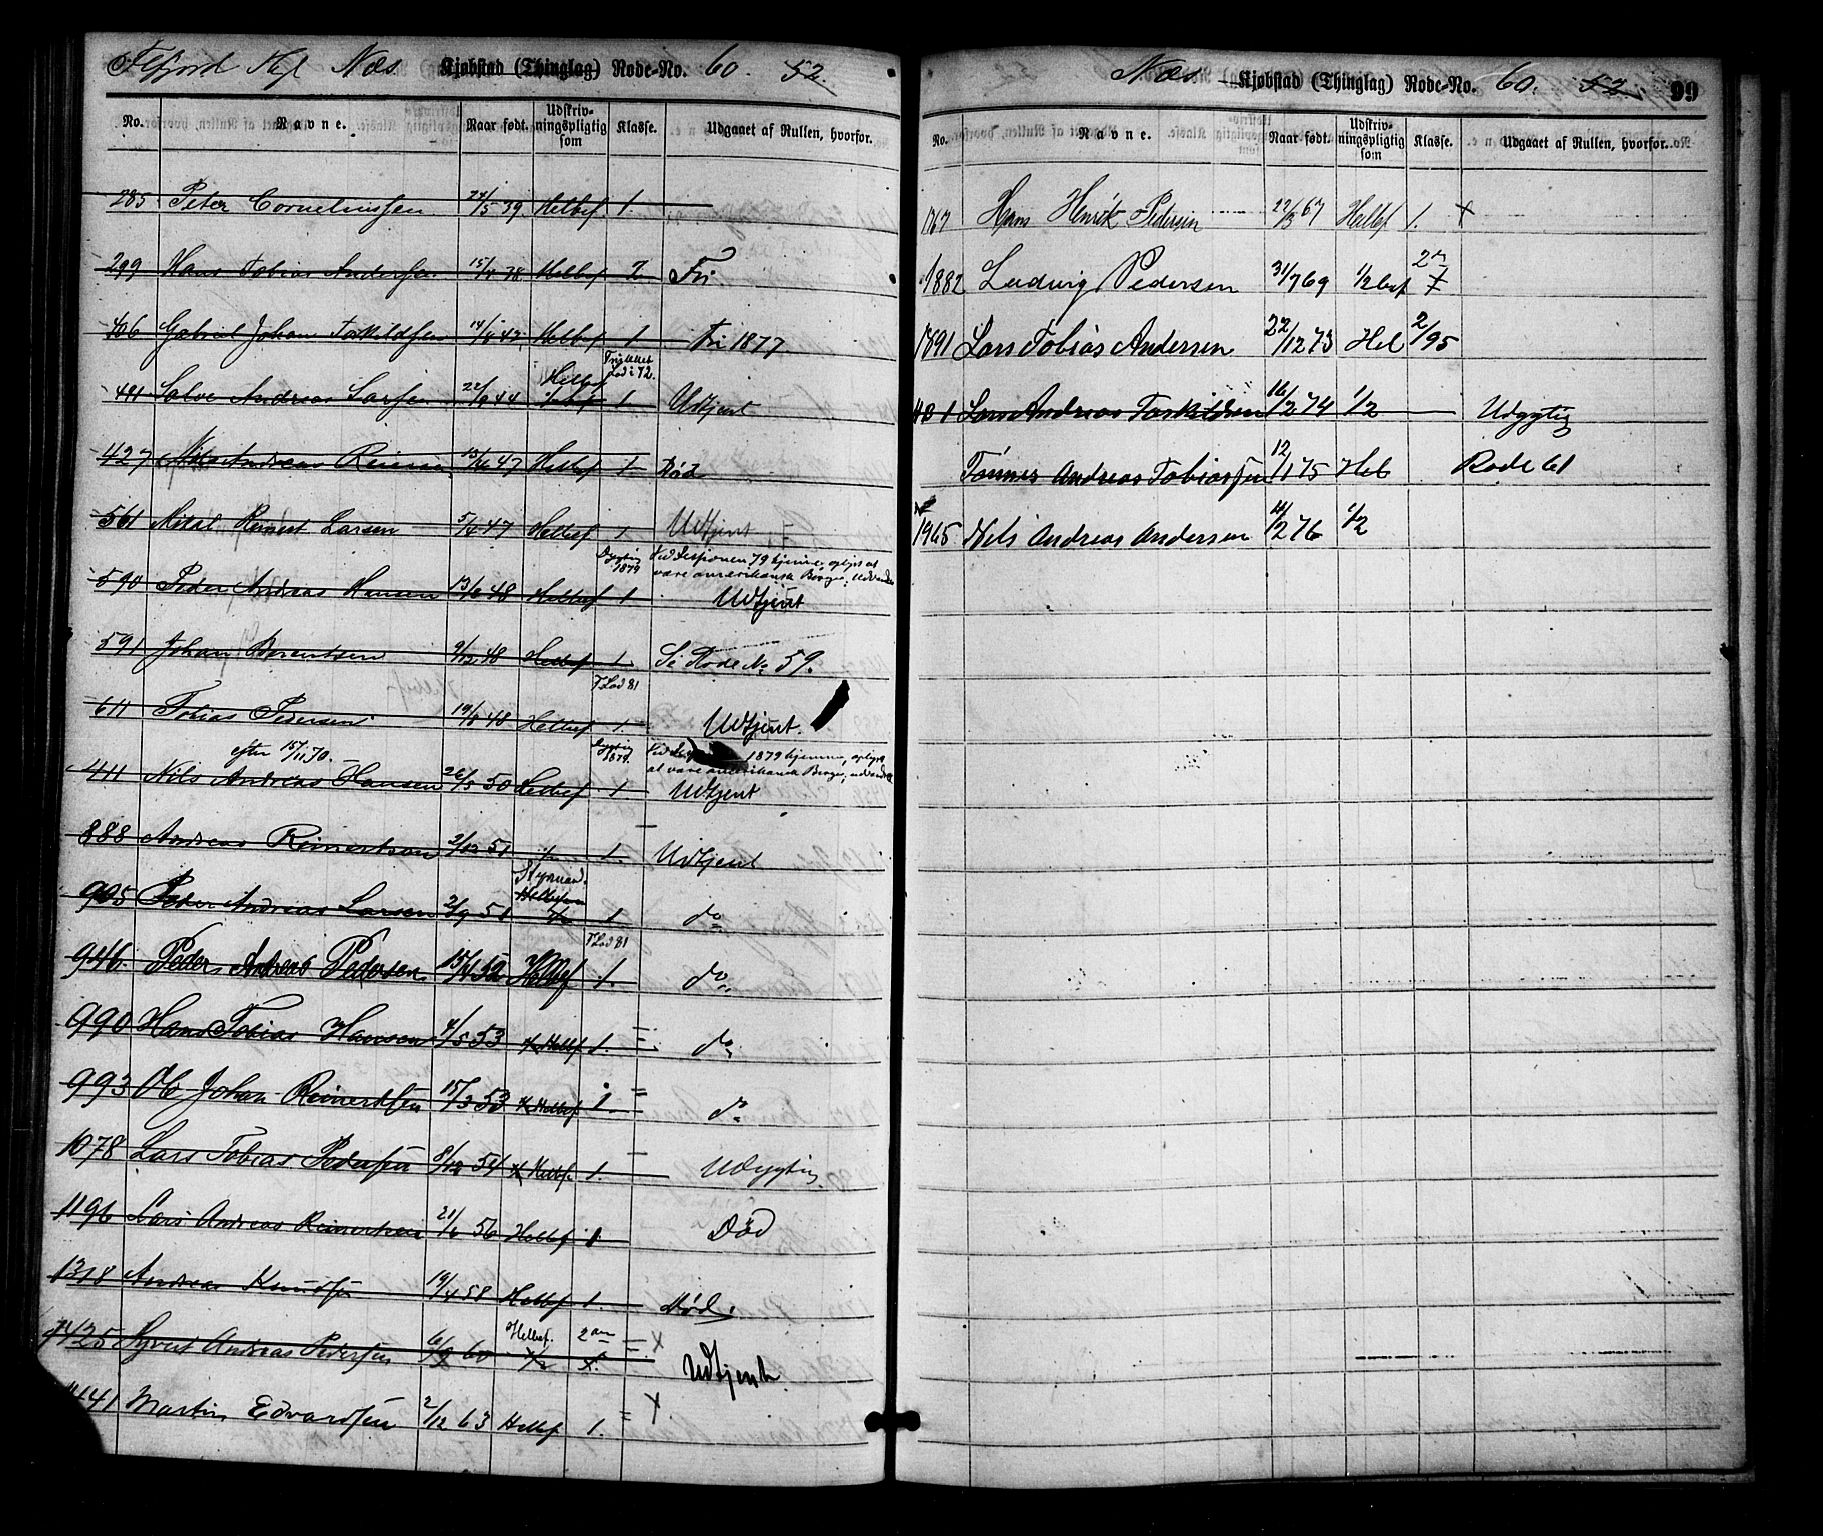 Flefjord Kpl Næs Kjøbstad (Thinglag) Rode-No. 60. 52.
No. Navne. Naar født. Udskrivningspligtig som Klasse. Udgaaet af Rullen, hvorfor.
285 Peter Corneliussen 24/5 39 Helbef 1.
299 Hans Tobias Andersen 38 Helbef 2 Fri
406 Gabriel Johan Torkildsen 42 Helbef 1 Fri 1877
Frilod i 72.
411 Salve Andreas Larsen 22/9 44 Helbef 1 Udtjent
427 Nils Andreas Reiners 47 Helbef 1 Død
561 Mikal Reinert Larsen 5/6 47 Helbef 1 Udtjent
Dygtig 1879 Ved Sessionen 79 hjemme, oplyst at
være amerikansk Borger, udvandret
590 Peder Andreas Hansen 13/6 48 Helbef 1 Udtjent
591 Johan Berentsen 9/12 48 Helbef 1 Se Rode No 59.
F Lod 81
611 Tobias Pedersen 19/8 48 Helbef 1. Udtjent.
efter 15/11 70. Dygtig 1879. Ved 1879 hjemme, oplyst
at være amerikansk Borger, udvandret
411 Nils Andreas Hansen 26/5 50 Helbef 1 Udtjent
888 Andreas Reinertsen 2/12 51 1/2 1. Udtjent
Styrmand.
Helbefaren
905 Peder Andreas Larsen 2/9 51 1/2 1 do
F Lod 81
946. Peder Andreas Pedersen 15/4 52 Helbef 1. do
990 Hans Tobias Hansen 4/5 53 1/2 Helbf 1. do
993 Ole Johan Reinertsen 15/3 53 1/2 Helbef 1. do
1078 Lars Tobias Pedersen 8/12 54 1/2 Helbf. 1. Udygtig
1196 Lars Andreas Reinertsen 21/6 56 Helbef 1 Død
1318 Andreas Knudsen 19/4 58 Helbef 1. Død.
Helbef. 2den
1425 Syvert Andreas Pedersen 6/9 60 1/2 1. x Udtjent.
1441 Martin Edvardsen 2/12 63 Helbef 1. x
Næs Kjøbstad (Thinglag) Rode-No. 60. 52 99
No. Navne. Naar født. Udskrivningspligtig som Klasse. Udgaaet af Rullen, hvorfor.
1767 Hans Henrik Pedersen 22/3 67 Helbf 1. x
1882 Ludvig Pedersen 31/7 69 1/2 bef 2den 1
1891 Lars Tobias Andersen 22/12 73 Hel 2/95
Lars Andreas Torkildsen 16/2 74 1/2 Udygtig
Tønnes Andreas Tobiassen 12/1 75 Hel Rode 61
1965 Nils Andreas Andersen 21/2 76 1/2